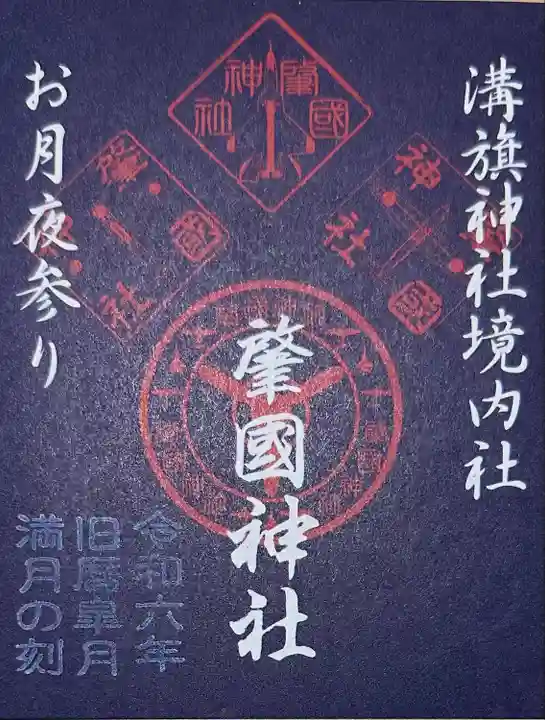 溝旗神社境内社
肇國神社
お月夜参り
令和六年
旧暦皐月
満月の刻
肇國
神社
神社